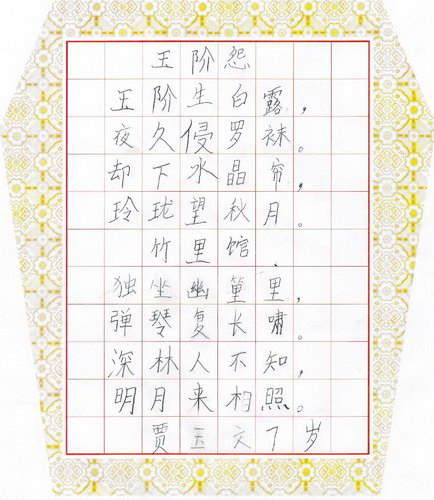 玉阶怨
玉阶生白露，
夜久侵罗袜。
却下水晶帘，
玲珑望秋月。
竹里馆
独坐幽篁里，
弹琴复长啸。
深林人不知，
明月来相照。
贾玉文7岁